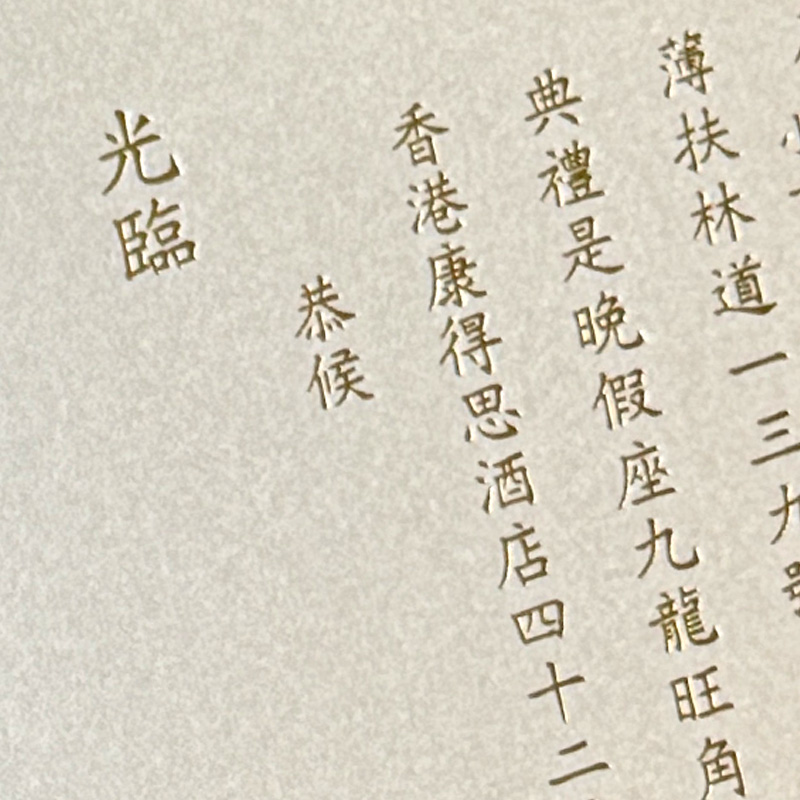 薄扶林道一三九號
典禮是晚假座九龍旺角
香港康得思酒店四十二
恭候
光臨